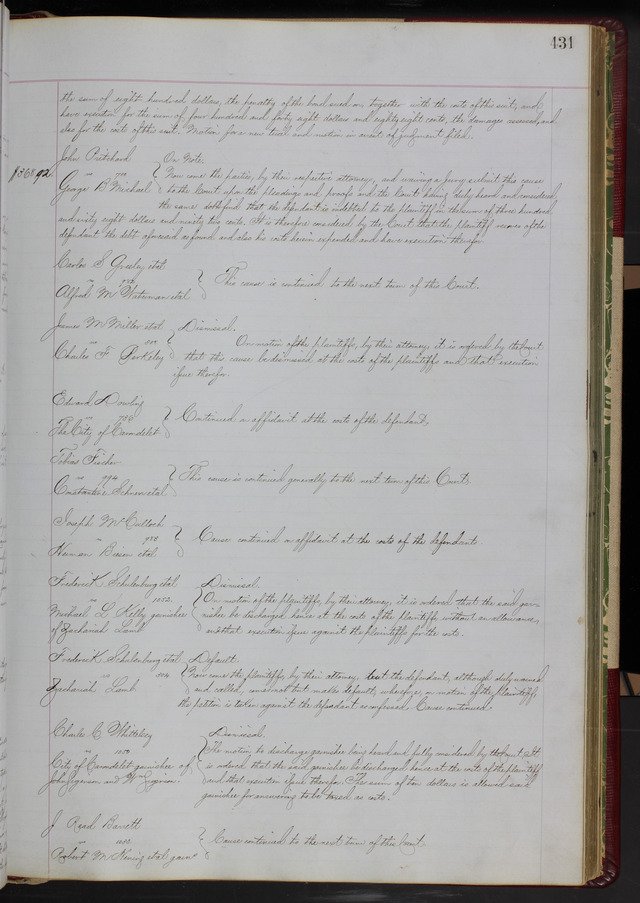 431
the sum of eight hundred dollars, the penalty of the bond sued on together with the costs of this suit, and
have execution for the sum of four hundred and forty eight dollars and eighty eight cents, the damages assessed, and
also for the costs of this suit. Motion for a new trial and motion in arrest of judgment filed.
John Pritchard On Note.
$368 92 vs Now come the parties, by their respective attorneys, and waiving a jury submit this cause
George B Michael to the Court upon the pleadings and proofs and the Court having duly heard and considered
the same doth find that the defendant is indebted to the plaintiff in the sum of three hundred
and sixty eight dollars and ninety two cents. It is therefore considered by the Court that the plaintiff recover of the
defendant the debt aforesaid as found and also his costs herein expended and have execution therefor
Carlos S Greeley et al
vs This cause is continued to the next term of this Court.
Alfred M Waterman et al
James M Miller et al Dismissal.
vs On motion of the plaintiffs, by their attorney, it is ordered by the Court
Charles F that this cause be dismissed at the costs of the plaintiffs and that execution
issue therefor.
Edward Dowling
vs Continued on affidavit at the costs of the defendant.
The City of Carondelet
Tobias Fischer
vs 794 This cause is continued generally to the next term of this Court.
Constantine et al
Joseph McCulloch
vs Cause continued on affidavit at the costs of the defendants
Herman et al
Frederick Schulenburg et al Dismissal.
vs 1052 On motion of the plaintiffs, by their attorney, it is ordered that the said garn
Michael L Kelly garnishee nishee be discharged hence at the costs of the plaintiffs without an allowance,
of Zachariah Lamb and that execution issue against the plaintiffs for the costs.
Frederick Schulenburg et al Default.
vs Now come the plaintiffs, by their attorney, but the defendant, although duly named
Zachariah Lamb and called, comes not but makes default, wherefore, on motion of the plaintiffs,
the petition is taken against the defendant as confessed. Cause continued.
Charles C Whittelsey Dismissal.
vs The motion to discharge garnishee being heard and fully considered by the Court it
City of Carondelet garnishee of is ordered that the said garnishee be discharged hence at the costs of the plaintiff
John and W and that execution issue therefor. The sum of ten dollars is allowed said
garnishee for answering to be taxed as costs.
J Read Barrett
vs Cause continued to the next term of this Court.
Robert M et al garn